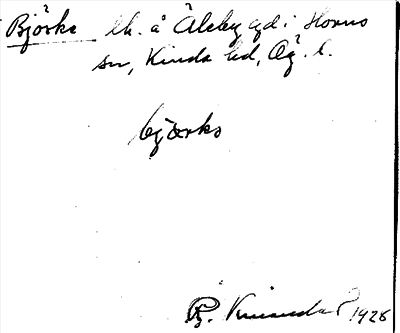 Björke lh. å Åleby gd i Horns
sn, Kinda hd, Ög. l.
bjärks
R. 1928